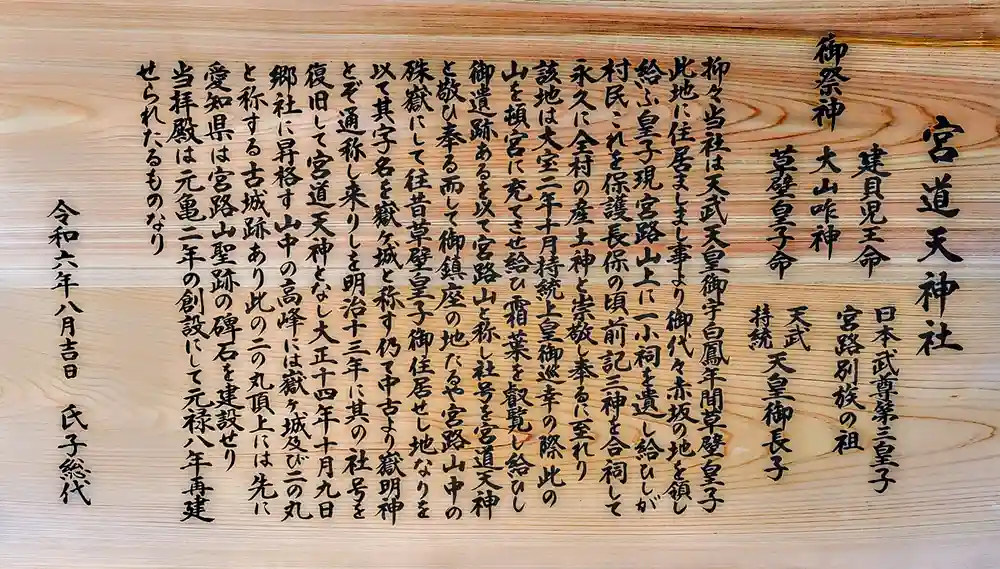 宮道天神社
御祭神
建貝児王命 日本武尊第三皇子
宮路別族の祖
大山咋神
草壁皇子命 天武
持統 天皇御長子
抑々当社は天武天皇御宇白鳳年間草壁皇子
此地に住居ましまし事より御代々赤坂の地を領し
給ふ皇子現宮路山上に一小祠を遺し給ひしが
村民これを保護長保の頃前記三神を合祠して
永久に全村の産土神と崇敬し奉るに至れり
該地は大宝二年十月持統上皇御巡幸の際此の
山を頓宮に充てさせ給ひ霜葉を叡覧し給ひし
御遺跡あるを以て宮路山と称し社号を宮道天神
と敬ひ奉る而して御鎮座の地たるや宮路山中の
硃嶽にして往昔草壁皇子御住居せし地なりを
以て其字名を嶽ヶ城と称す仍て中古より嶽明神
とぞ通称し来りしを明治十三年に其の社号を
復旧して宮道天神となし大正十四年十月九日
郷社に昇格す山中の高峰には嶽ヶ城及び二の丸
と称する古城跡あり此の二の丸頂上には先に
愛知県は宮路山聖跡の碑石を建設せり
当拝殿は元亀二年の創設にして元禄八年再建
せられたるものなり
令和六年八月吉日 氏子総代